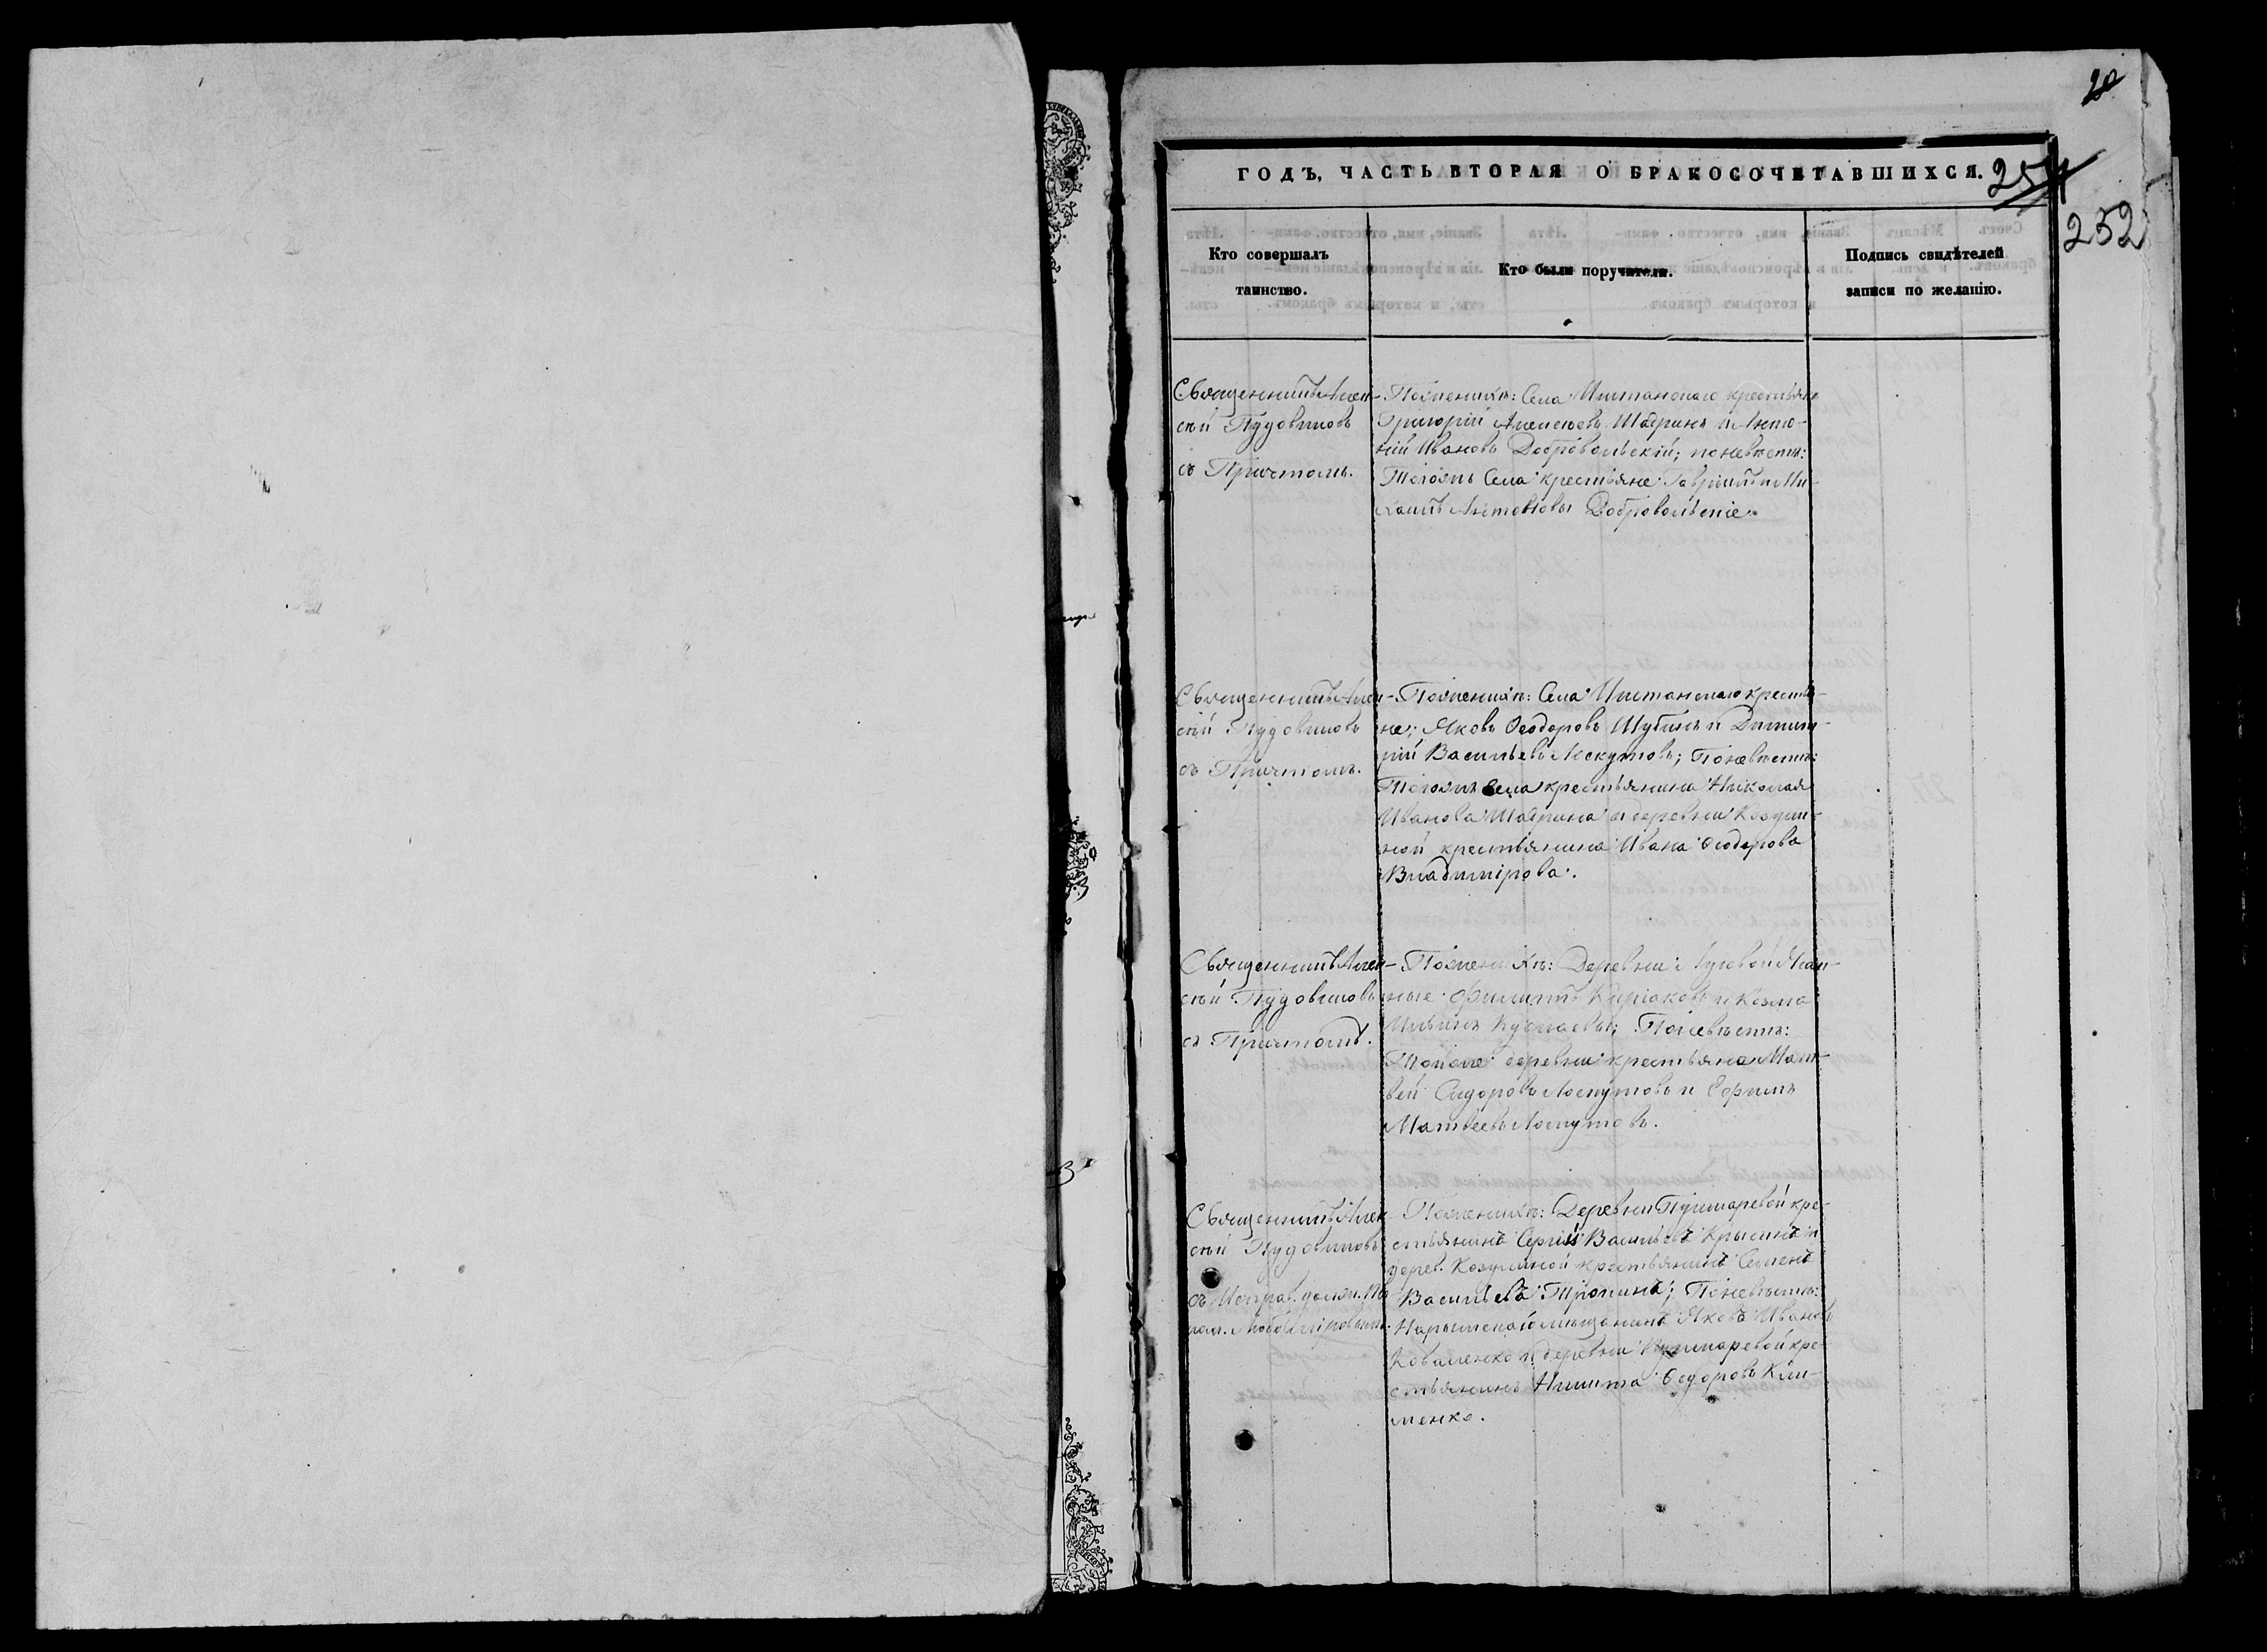 20
ГОДЪ, ЧАСТЬ ВТОРАЯ О БРАКОСОЧЕТАВШИХСЯ.
254
252
Кто совершалъ
таинство.
Кто были поручители.
Подпись свидѣтелей
записи по желанію.
Священникъ Алек-
сѣй Пудовиковъ
съ Причтомъ.
По женихѣ: Села Иштанскаго крестьяне
Григорій Алексѣевъ Шадринъ и Анто-
ній Ивановъ Добровольскій; по невѣстѣ:
Тогожъ Села крестьяне Гавріилъ и Ми-
хаилъ Антоновы Добровольскіе.
Священникъ Алек-
сѣй Пудовиковъ
съ Причтомъ.
По женихѣ: Села Иштанскаго крестья-
не; Яковъ Ѳеодоровъ Шубинъ и Димит-
рій Васильевъ Лоскутовъ; По невѣстѣ:
Тогожъ Села крестьянина Николая
Иванова Шадрина и деревни
крестьянина Ивана Ѳеодорова
Владимірова.
Священникъ Алек-
сѣй Пудовиковъ
съ Причтомъ.
По женихѣ: Деревни Луговой
Филиппъ Киріаковъ и Козма
По невѣстѣ:
Тойже деревни крестьяне Мат-
вей Сидоровъ Лоскутовъ и Ефимъ
Матвеевъ Лоскутовъ.
Священникъ Алек-
сѣй Пудовиковъ
съ
По женихѣ: Деревни кре-
стьянинъ Сергій Васильевъ Крысинъ и
дерев. крестьянинъ Семенъ
Васильевъ Тропинъ; По невѣстѣ:
Нарымскаго мѣщанина Яковъ Ивановъ
Коваленко и деревни кре-
стьянинъ Никита Ѳедоровъ Кли-
менко.